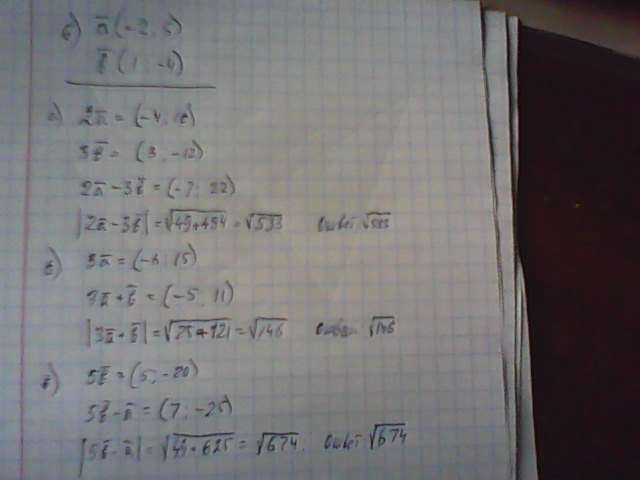 б) a̅(-2; 5)
b̅(1; -4)
а) 2a̅ = (-4; 10)
3b̅ = (3; -12)
2a̅ - 3b̅ = (-7; 22)
|2a̅ - 3b̅| = √49+484 = √533 Ответ √533
б) 3a̅ = (-6; 15)
3a̅ + b̅ = (-5; 11)
|3a̅ + b̅| = √25+121 = √146 Ответ √146
в) 5b̅ = (5; -20)
5b̅ - a̅ = (7; -25)
|5b̅ - a̅| = √49+625 = √674. Ответ √674